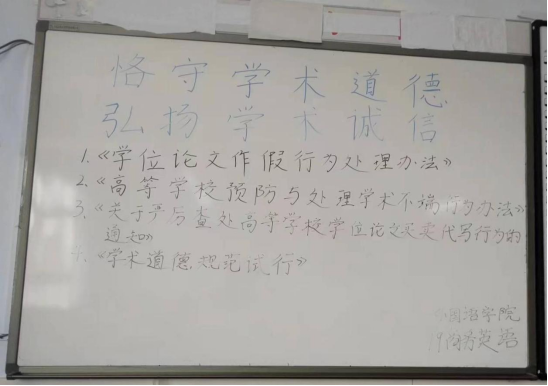 恪守学术道德
弘扬学术诚信
1.《学位论文作假行为处理办法》
2.《高等学校预防与处理学术不端行为办法》
3.《关于严厉查处高等学校学位论文买卖代写行为的
通知》
《学术道德规范试行》
学院
商务英语